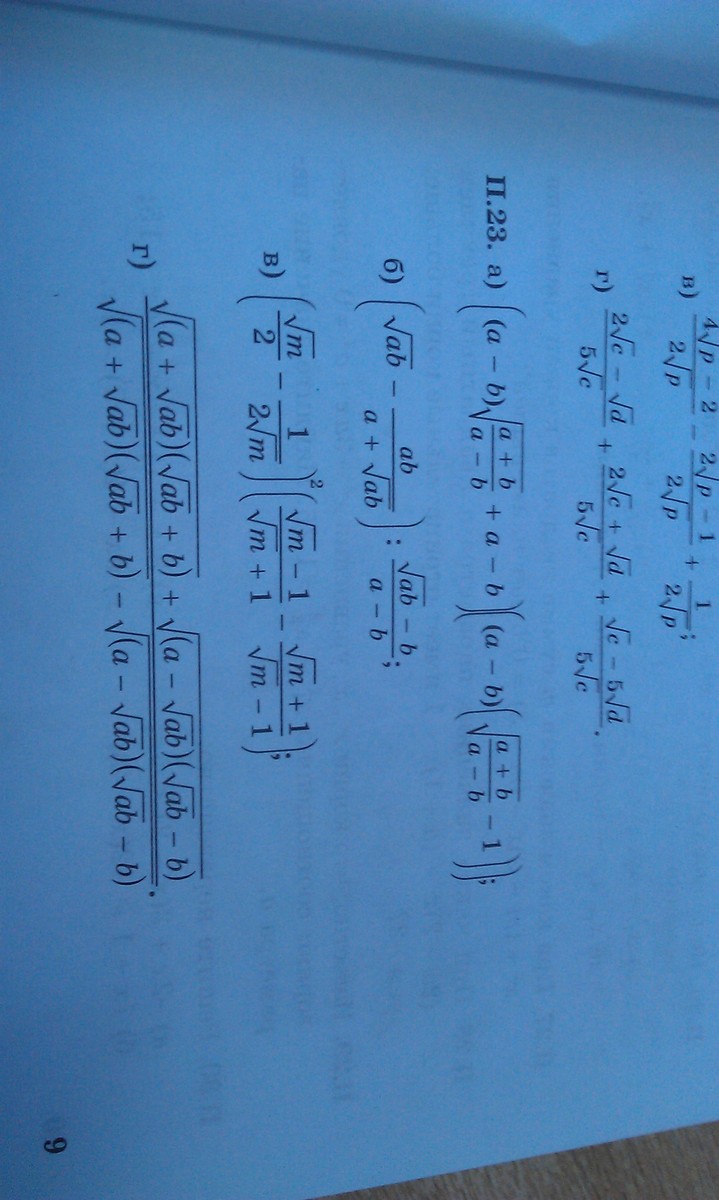 в) (4√p − 2)/(2√p) − (2√p − 1)/(2√p) + 1/(2√p);
г) (2√c − √d)/(5√c) + (2√c + √d)/(5√c) + (√c − 5√d)/(5√c).
II.23. а) ((a − b)√((a + b)/(a − b)) + a − b)((a − b)(√((a + b)/(a − b)) − 1));
б) (√ab − ab/(a + √ab)) : (√ab − b)/(a − b);
в) (√m/2 − 1/(2√m))²((√m − 1)/(√m + 1) − (√m + 1)/(√m − 1));
г) (√((a + √ab)(√ab + b)) + √((a − √ab)(√ab − b)))/(√((a + √ab)(√ab + b)) − √((a − √ab)(√ab − b))).
9